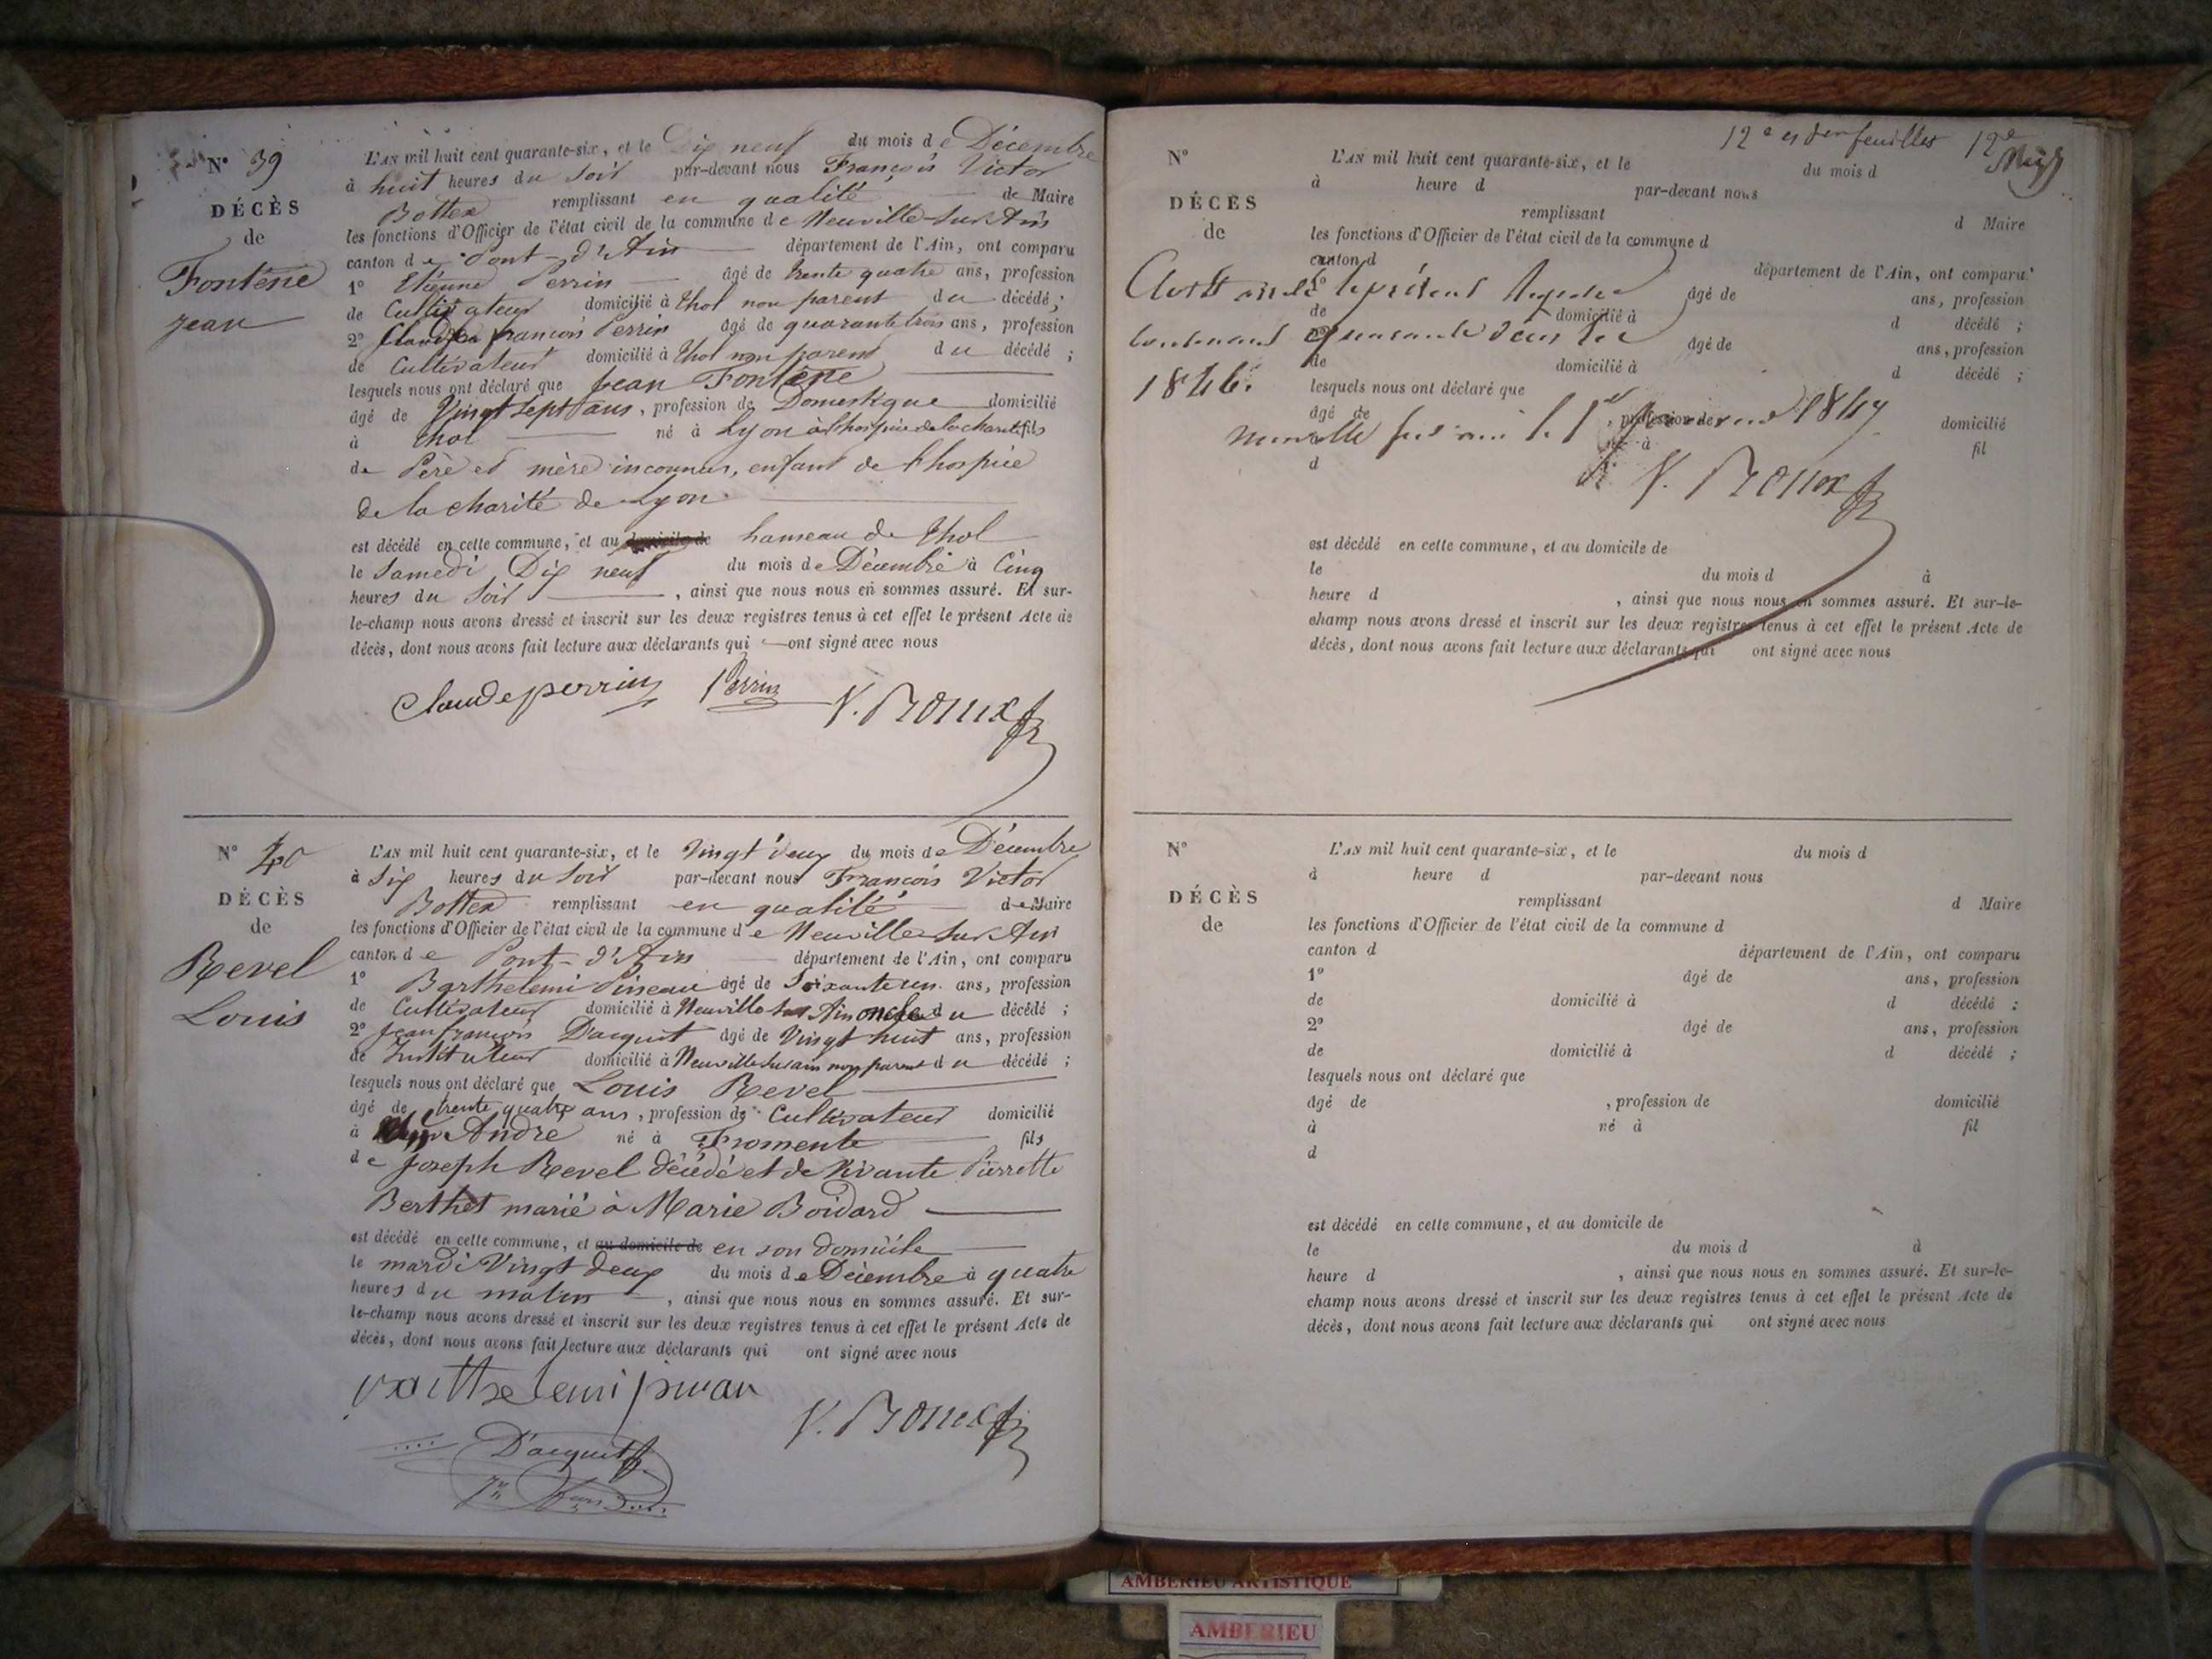 N° 39
DÉCÈS
de
Fontène
jean
L'AN mil huit cent quarante-six, et le Dix neuf du mois de Décembre
à huit heures du soir par-devant nous François Victor
Bottex remplissant en qualité de Maire
les fonctions d'Officier de l'état civil de la commune de Neuville-sur-Ain
canton de Pont-d'Ain département de l'Ain, ont comparu
1° Etienne Perrin âgé de trente quatre ans, profession
de Cultivateur domicilié à Thol non parent du décédé;
2° Claude françois Perrin âgé de quarante trois ans, profession
de Cultivateur domicilié à Thol non parent du décédé;
lesquels nous ont déclaré que Jean Fontène
âgé de Vingt Sept ans, profession de Domestique domicilié
à Thol né à Lyon à l'hospice de la charité fils
de Père et mère inconnus, enfant de l'hospice
de la charité de Lyon
est décédé en cette commune, et au domicile de hameau de Thol
le Samedi Dix neuf du mois de Décembre à Cinq
heures du Soir, ainsi que nous nous en sommes assuré. Et sur-
le-champ nous avons dressé et inscrit sur les deux registres tenus à cet effet le présent Acte de
décès, dont nous avons fait lecture aux déclarants qui ont signé avec nous
Claude perrin Perrin V. Bottex
N° 40
DÉCÈS
de
Revel
Louis
L'AN mil huit cent quarante-six, et le Vingt deux du mois de Décembre
à Six heures du Soir par-devant nous François Victor
Bottex remplissant en qualité de Maire
les fonctions d'Officier de l'état civil de la commune de Neuville sur Ain
canton de Pont-d'Ain département de l'Ain, ont comparu
1° Barthelemi Pineau âgé de Soixante un ans, profession
de Cultivateur domicilié à Neuville sur Ain oncle du décédé;
2° jean françois Dacquit âgé de Vingt huit ans, profession
de Instituteur domicilié à Neuville sur ain non parent du décédé;
lesquels nous ont déclaré que Louis Revel
âgé de trente quatre ans, profession de Cultivateur domicilié
à André né à Fromente fils
de Joseph Revel décédé et de Vivante Pierrette
Berthet marié à Marie Boidard
est décédé en cette commune, et au domicile de en son domicile
le mardi Vingt deux du mois de Décembre à quatre
heures du matin, ainsi que nous nous en sommes assuré. Et sur-
le-champ nous avons dressé et inscrit sur les deux registres tenus à cet effet le présent Acte de
décès, dont nous avons fait lecture aux déclarants qui ont signé avec nous
V. Bottex
Dacquit
12e et der feuillet 12e
N°
DÉCÈS
de
L'AN mil huit cent quarante-six, et le du mois d
à heure d par-devant nous
remplissant d Maire
les fonctions d'Officier de l'état civil de la commune d
canton d département de l'Ain, ont comparu
Clos et arrêté le présent Registre
1° âgé de ans, profession
de domicilié à d décédé;
contenant quarante
2° âgé de ans, profession
de domicilié à d décédé;
1846.
lesquels nous ont déclaré que
âgé de , profession de domicilié
Neuville sur ain le 1er 1847
à né à fil
d
V. Bottex
est décédé en cette commune, et au domicile de
le du mois d à
heure d , ainsi que nous nous en sommes assuré. Et sur-le-
champ nous avons dressé et inscrit sur les deux registres tenus à cet effet le présent Acte de
décès, dont nous avons fait lecture aux déclarants qui ont signé avec nous
N°
DÉCÈS
de
L'AN mil huit cent quarante-six, et le du mois d
à heure d par-devant nous
remplissant d Maire
les fonctions d'Officier de l'état civil de la commune d
canton d département de l'Ain, ont comparu
1° âgé de ans, profession
de domicilié à d décédé;
2° âgé de ans, profession
de domicilié à d décédé;
lesquels nous ont déclaré que
âgé de , profession de domicilié
à né à fil
d
est décédé en cette commune, et au domicile de
le du mois d à
heure d , ainsi que nous nous en sommes assuré. Et sur-le-
champ nous avons dressé et inscrit sur les deux registres tenus à cet effet le présent Acte de
décès, dont nous avons fait lecture aux déclarants qui ont signé avec nous
AMBERIEU ARTISTIQUE
AMBERIEU